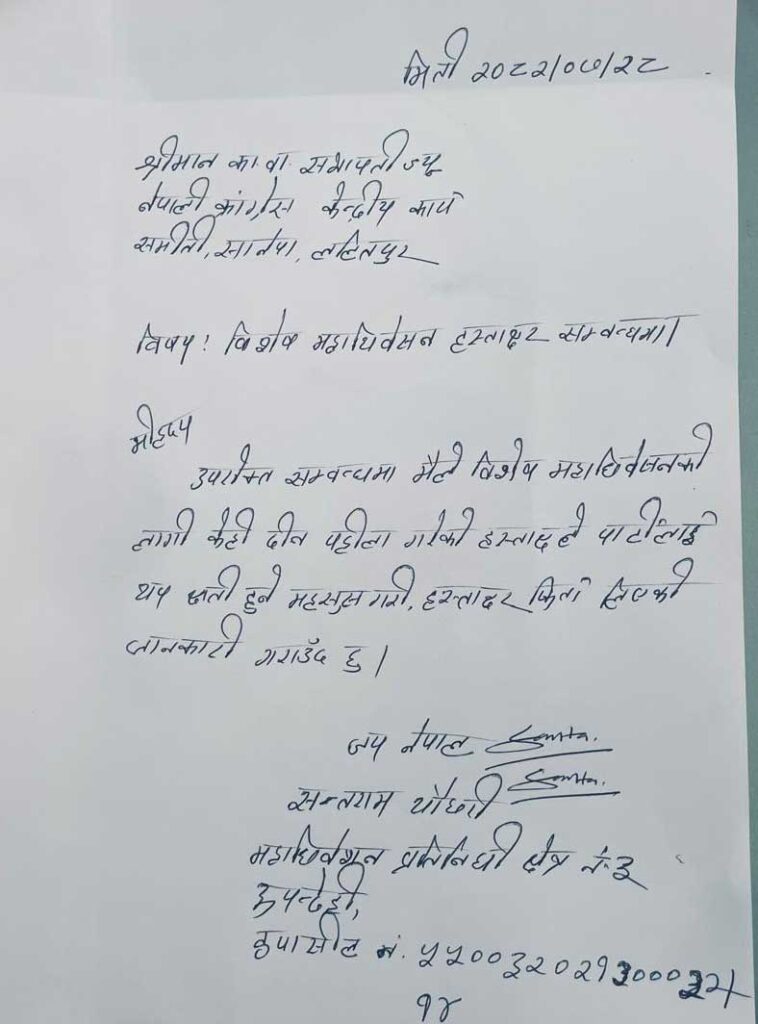 मिती २०८२/०७/२८
श्रीमान का.वा. सभापती ज्यू
नेपाली कांग्रेस केन्द्रीय कार्य
समीती, सानेपा, ललितपुर
विषय: विशेष महाधिवेसन हस्ताक्षर सम्बन्धमा।
मोहदय
उपरोक्त सम्बन्धमा मैले विशेष महाधिवेसनको
लागी केही दीन पहीला गरेको हस्ताक्षरले पार्टीलाई
थप क्षती हुने महसुस गरी, हस्ताक्षर फिर्ता लिएको
जानकारी गराउँद छु।
जय नेपाल
सन्तराम चौधरी
महाधिवेशन प्रतिनिधी क्षेत्र नं. ३
रुपन्देही,
क्रुपासील नं.
१४